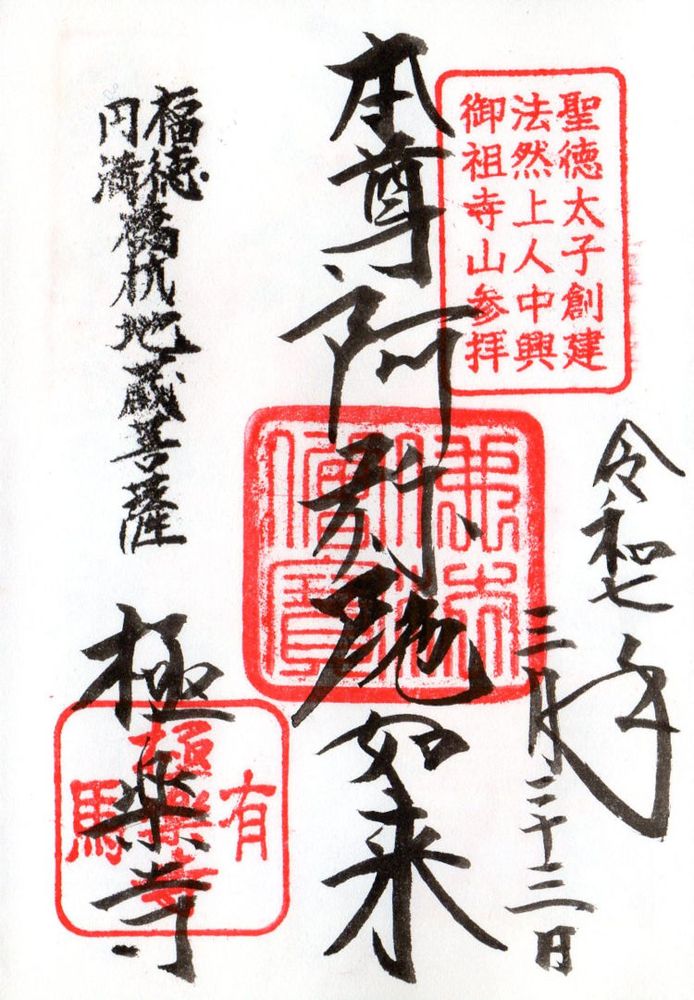 聖徳太子創建
法然上人中興
御祖寺山参拝
令和七年
三月二十三日
本尊阿弥陀如来
福徳
円満
橋杭地蔵菩薩
極楽寺
有
極樂寺
馬